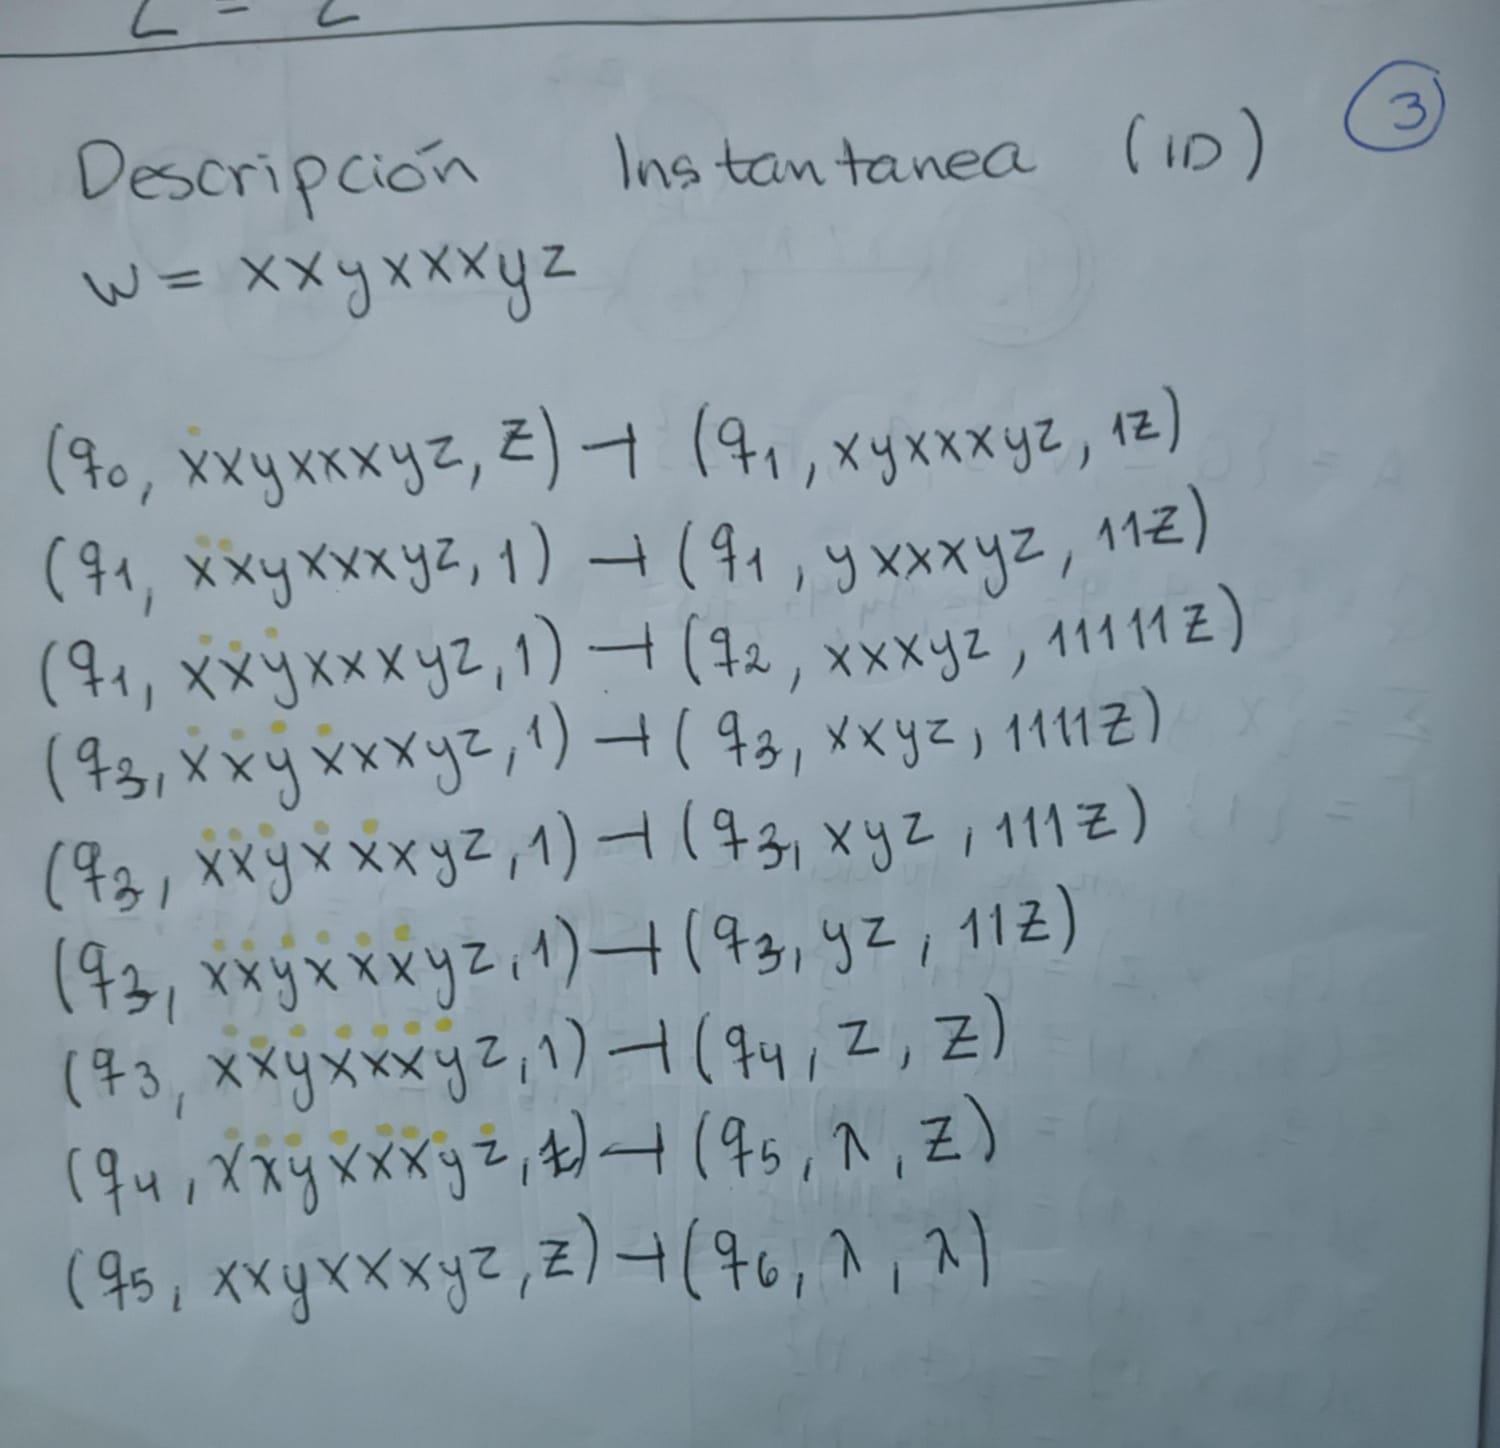 Z = Z
3
Descripción Instantanea (ID)
w = xxyxxxyz
(q0, xxyxxxyz, Z) ⊣ (q1, xyxxxyz, 1Z)
(q1, xxyxxxyz, 1) ⊣ (q1, yxxxyz, 11Z)
(q1, xxyxxxyz, 1) ⊣ (q2, xxxyz, 11111Z)
(q3, xxyxxxyz, 1) ⊣ (q3, xxyz, 1111Z)
(q3, xxyxxxyz, 1) ⊣ (q3, xyz, 111Z)
(q3, xxyxxxyz, 1) ⊣ (q3, yz, 11Z)
(q3, xxyxxxyz, 1) ⊣ (q4, z, Z)
(q4, xxyxxxyz, Z) ⊣ (q5, λ, Z)
(q5, xxyxxxyz, Z) ⊣ (q6, λ, λ)